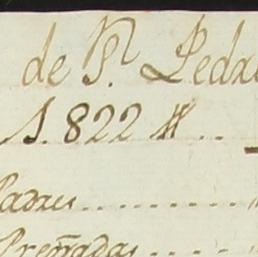 de Sn. Pedro
1822 #..
Padres........
Preñadas.....